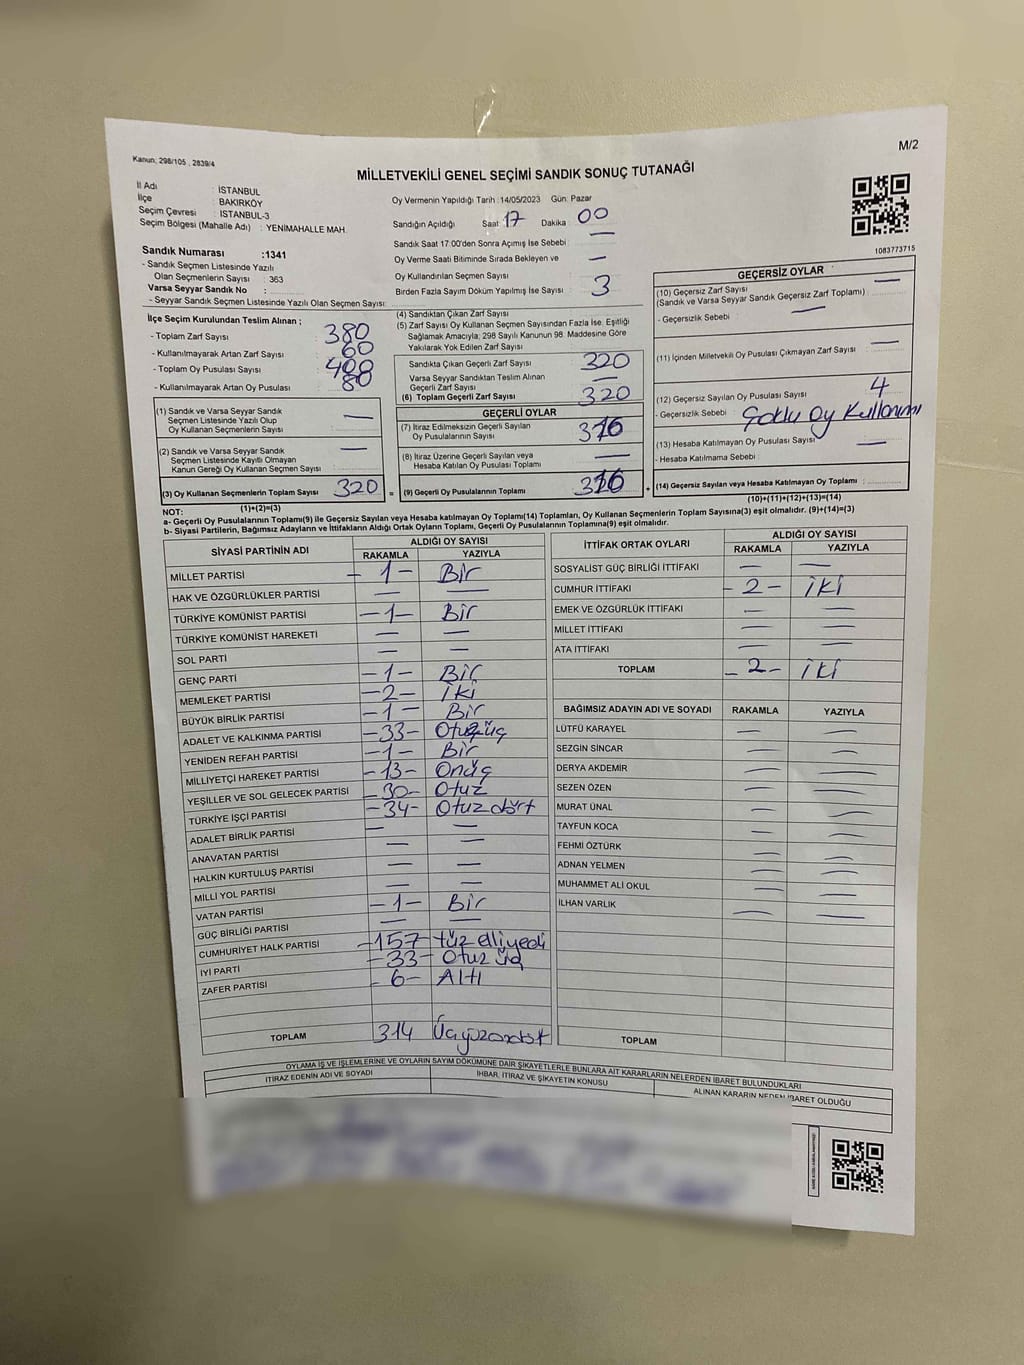 Kanun; 298/105 , 2839/4
M/2
MİLLETVEKİLİ GENEL SEÇİMİ SANDIK SONUÇ TUTANAĞI
İl Adı : İSTANBUL
İlçe : BAKIRKÖY
Seçim Çevresi : İSTANBUL-3
Seçim Bölgesi (Mahalle Adı) : YENİMAHALLE MAH.
Sandık Numarası :1341
- Sandık Seçmen Listesinde Yazılı
Olan Seçmenlerin Sayısı : 363
Varsa Seyyar Sandık No :
- Seyyar Sandık Seçmen Listesinde Yazılı Olan Seçmen Sayısı:
Oy Vermenin Yapıldığı Tarih :14/05/2023 Gün: Pazar
Sandığın Açıldığı Saat: 17 Dakika : 00
Sandık Saat 17.00'den Sonra Açımış İse Sebebi : —
Oy Verme Saati Bitiminde Sırada Bekleyen ve
Oy Kullandırılan Seçmen Sayısı : —
Birden Fazla Sayım Döküm Yapılmış İse Sayısı : 3
1083773715
İlçe Seçim Kurulundan Teslim Alınan ;
- Toplam Zarf Sayısı : 380
- Kullanılmayarak Artan Zarf Sayısı : 60
- Toplam Oy Pusulası Sayısı : 400
- Kullanılmayarak Artan Oy Pusulası : 80
(1) Sandık ve Varsa Seyyar Sandık
Seçmen Listesinde Yazılı Olup
Oy Kullanan Seçmenlerin Sayısı —
(2) Sandık ve Varsa Seyyar Sandık
Seçmen Listesinde Kayıtlı Olmayan
Kanun Gereği Oy Kullanan Seçmen Sayısı —
(3) Oy Kullanan Seçmenlerin Toplam Sayısı 320
(1)+(2)=(3)
(4) Sandıktan Çıkan Zarf Sayısı
(5) Zarf Sayısı Oy Kullanan Seçmen Sayısından Fazla İse, Eşitliği
Sağlamak Amacıyla; 298 Sayılı Kanunun 98. Maddesine Göre
Yakılarak Yok Edilen Zarf Sayısı
Sandıkta Çıkan Geçerli Zarf Sayısı 320
Varsa Seyyar Sandıktan Teslim Alınan
Geçerli Zarf Sayısı —
(6) Toplam Geçerli Zarf Sayısı 320
GEÇERLİ OYLAR
(7) İtiraz Edilmeksizin Geçerli Sayılan
Oy Pusulalarının Sayısı 316
(8) İtiraz Üzerine Geçerli Sayılan veya
Hesaba Katılan Oy Pusulası Toplamı —
(9) Geçerli Oy Pusulalarının Toplamı 316
GEÇERSİZ OYLAR
(10) Geçersiz Zarf Sayısı
(Sandık ve Varsa Seyyar Sandık Geçersiz Zarf Toplamı) : —
- Geçersizlik Sebebi : —
(11) İçinden Milletvekili Oy Pusulası Çıkmayan Zarf Sayısı : —
(12) Geçersiz Sayılan Oy Pusulası Sayısı : 4
- Geçersizlik Sebebi : Çoklu Oy Kullanımı
(13) Hesaba Katılmayan Oy Pusulası Sayısı : —
- Hesaba Katılmama Sebebi :
(14) Geçersiz Sayılan veya Hesaba Katılmayan Oy Toplamı :
(10)+(11)+(12)+(13)=(14)
NOT:
a- Geçerli Oy Pusulalarının Toplamı(9) ile Geçersiz Sayılan veya Hesaba katılmayan Oy Toplamı(14) Toplamları, Oy Kullanan Seçmenlerin Toplam Sayısına(3) eşit olmalıdır. (9)+(14)=(3)
b- Siyasi Partilerin, Bağımsız Adayların ve İttifakların Aldığı Ortak Oyların Toplamı, Geçerli Oy Pusulalarının Toplamına(9) eşit olmalıdır.
SİYASİ PARTİNİN ADI ALDIĞI OY SAYISI
RAKAMLA YAZIYLA
MİLLET PARTİSİ – 1 – Bir
HAK VE ÖZGÜRLÜKLER PARTİSİ — —
TÜRKİYE KOMÜNİST PARTİSİ – 1 – Bir
TÜRKİYE KOMÜNİST HAREKETİ — —
SOL PARTİ — —
GENÇ PARTİ – 1 – Bir
MEMLEKET PARTİSİ – 2 – iki
BÜYÜK BİRLİK PARTİSİ – 1 – Bir
ADALET VE KALKINMA PARTİSİ – 33 – Otuzüç
YENİDEN REFAH PARTİSİ – 1 – Bir
MİLLİYETÇİ HAREKET PARTİSİ – 13 – Onüç
YEŞİLLER VE SOL GELECEK PARTİSİ – 30 – Otuz
TÜRKİYE İŞÇİ PARTİSİ – 34 – Otuz dört
ADALET BİRLİK PARTİSİ — —
ANAVATAN PARTİSİ — —
HALKIN KURTULUŞ PARTİSİ — —
MİLLİ YOL PARTİSİ — —
VATAN PARTİSİ – 1 – Bir
GÜÇ BİRLİĞİ PARTİSİ — —
CUMHURİYET HALK PARTİSİ – 157 – Yüz elliyedi
İYİ PARTİ – 33 – Otuz üç
ZAFER PARTİSİ – 6 – Altı
TOPLAM 314 Üçyüzondört
İTTİFAK ORTAK OYLARI ALDIĞI OY SAYISI
RAKAMLA YAZIYLA
SOSYALİST GÜÇ BİRLİĞİ İTTİFAKI — —
CUMHUR İTTİFAKI – 2 – iki
EMEK VE ÖZGÜRLÜK İTTİFAKI — —
MİLLET İTTİFAKI — —
ATA İTTİFAKI — —
TOPLAM – 2 – iki
BAĞIMSIZ ADAYIN ADI VE SOYADI RAKAMLA YAZIYLA
LÜTFÜ KARAYEL — —
SEZGİN SİNCAR — —
DERYA AKDEMİR — —
SEZEN ÖZEN — —
MURAT ÜNAL — —
TAYFUN KOCA — —
FEHMİ ÖZTÜRK — —
ADNAN YELMEN — —
MUHAMMET ALİ OKUL — —
İLHAN VARLIK — —
TOPLAM
OYLAMA İŞ VE İŞLEMLERİNE VE OYLARIN SAYIM DÖKÜMÜNE DAİR ŞİKAYETLERLE BUNLARA AİT KARARLARIN NELERDEN İBARET BULUNDUKLARI
İTİRAZ EDENİN ADI VE SOYADI İHBAR, İTİRAZ VE ŞİKAYETİN KONUSU ALINAN KARARIN NEDEN İBARET OLDUĞU